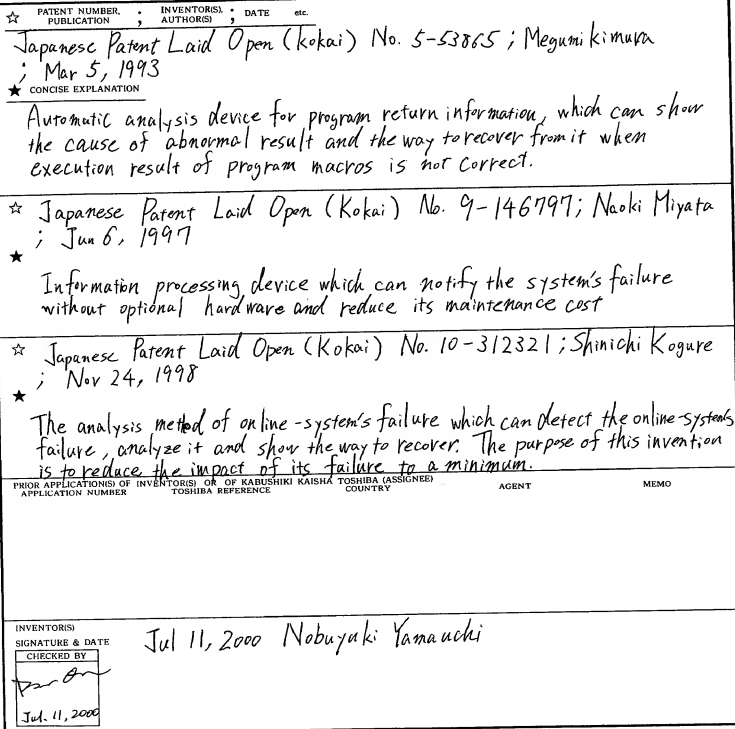 ☆ PATENT NUMBER, PUBLICATION ; INVENTOR(S), AUTHOR(S) ; DATE etc.
Japanese Patent Laid Open (Kokai) No. 5-53865 ; Megumi Kimura
; Mar 5, 1993
★ CONCISE EXPLANATION
Automatic analysis device for program return information, which can show
the cause of abnormal result and the way to recover from it when
execution result of program macros is not correct.
☆ Japanese Patent Laid Open (Kokai) No. 9-146797; Naoki Miyata
; Jun 6, 1997
★
Information processing device which can notify the system's failure
without optional hardware and reduce its maintenance cost
☆ Japanese Patent Laid Open (Kokai) No. 10-312321 ; Shinichi Kogure
; Nov 24, 1998
★
The analysis method of online-system's failure which can detect the online-system's
failure, analyze it and show the way to recover. The purpose of this invention
is to reduce the impact of its failure to a minimum.
PRIOR APPLICATION(S) OF INVENTOR(S) OR OF KABUSHIKI KAISHA TOSHIBA (ASSIGNEE)
APPLICATION NUMBER TOSHIBA REFERENCE COUNTRY AGENT MEMO
INVENTOR(S)
SIGNATURE & DATE Jul 11, 2000 Nobuyuki Yamauchi
CHECKED BY
Jul. 11, 2000